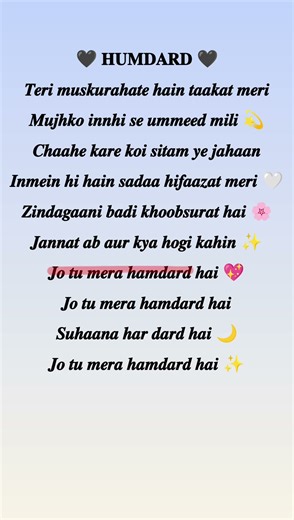 🖤 HUMDARD 🖤
Teri muskurahate hain taakat meri
Mujhko innhi se ummeed mili 💫
Chaahe kare koi sitam ye jahaan
Inmein hi hain sadaa hifaazat meri 🤍
Zindagaani badi khoobsurat hai 🌸
Jannat ab aur kya hogi kahin ✨
Jo tu mera hamdard hai 💖
Jo tu mera hamdard hai
Suhaana har dard hai 🌙
Jo tu mera hamdard hai ✨